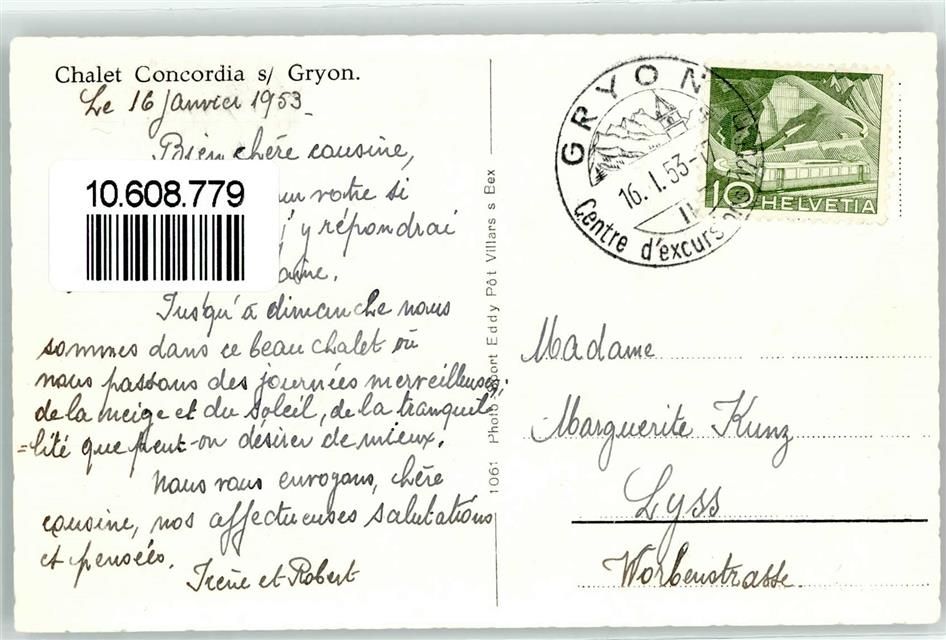 Chalet Concordia s/ Gryon.
Le 16 Janvier 1953
Bien chère cousine,
votre si
j'y répondrai
Jusqu'à dimanche nous
sommes dans ce beau chalet où
nous passons des journées merveilleuses;
de la neige et du soleil, de la tranquil,
=lité que peut-on désirer de mieux.
Nous vous envoyons, chère
cousine, nos affectueuses salutations
et pensées.
Irène et Robert
10.608.779
1061 Photo Sport Eddy Pôt Villars s Bex
GRYON
16.I.53-
11
Centre d'excursions
10 HELVETIA
Madame
Marguerite Kunz
Lyss
Worbenstrasse.